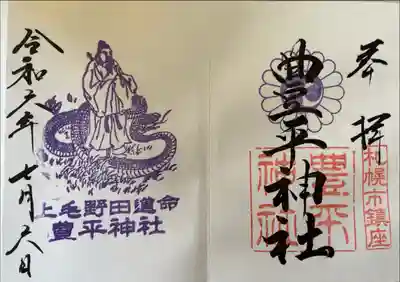 奉拝
札幌市鎮座
豊平神社
豊平神社
令和六年七月六日
上毛野田道命
豊平神社